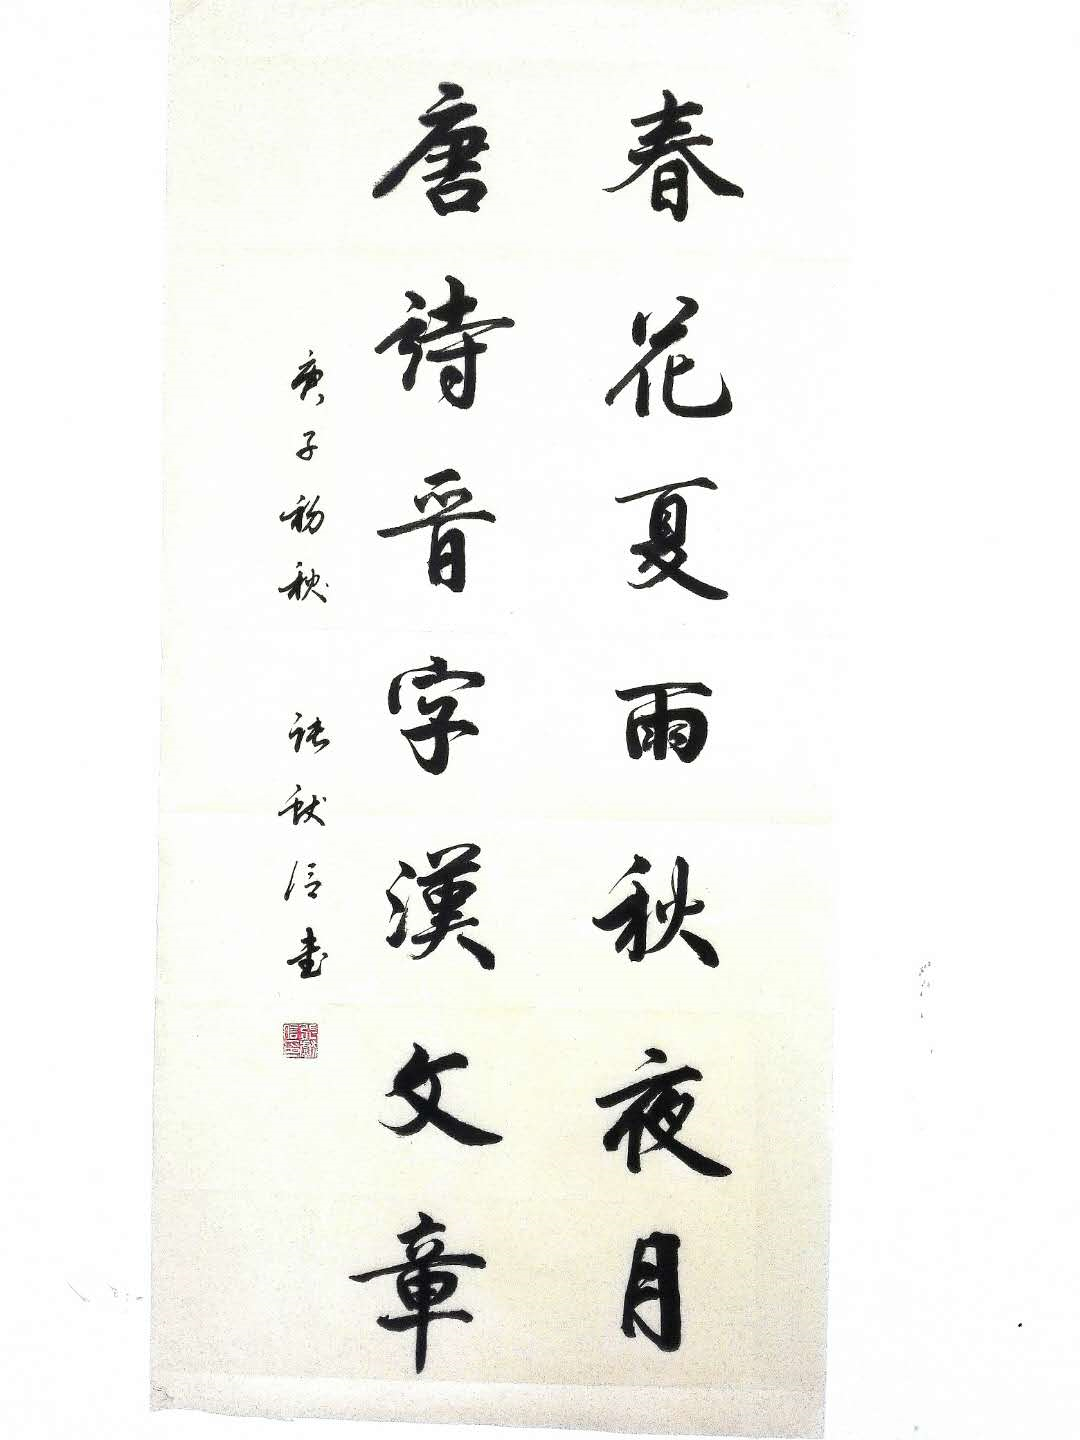 春花夏雨秋夜月
唐詩晋字漢文章
庚子初秋 張獻信書